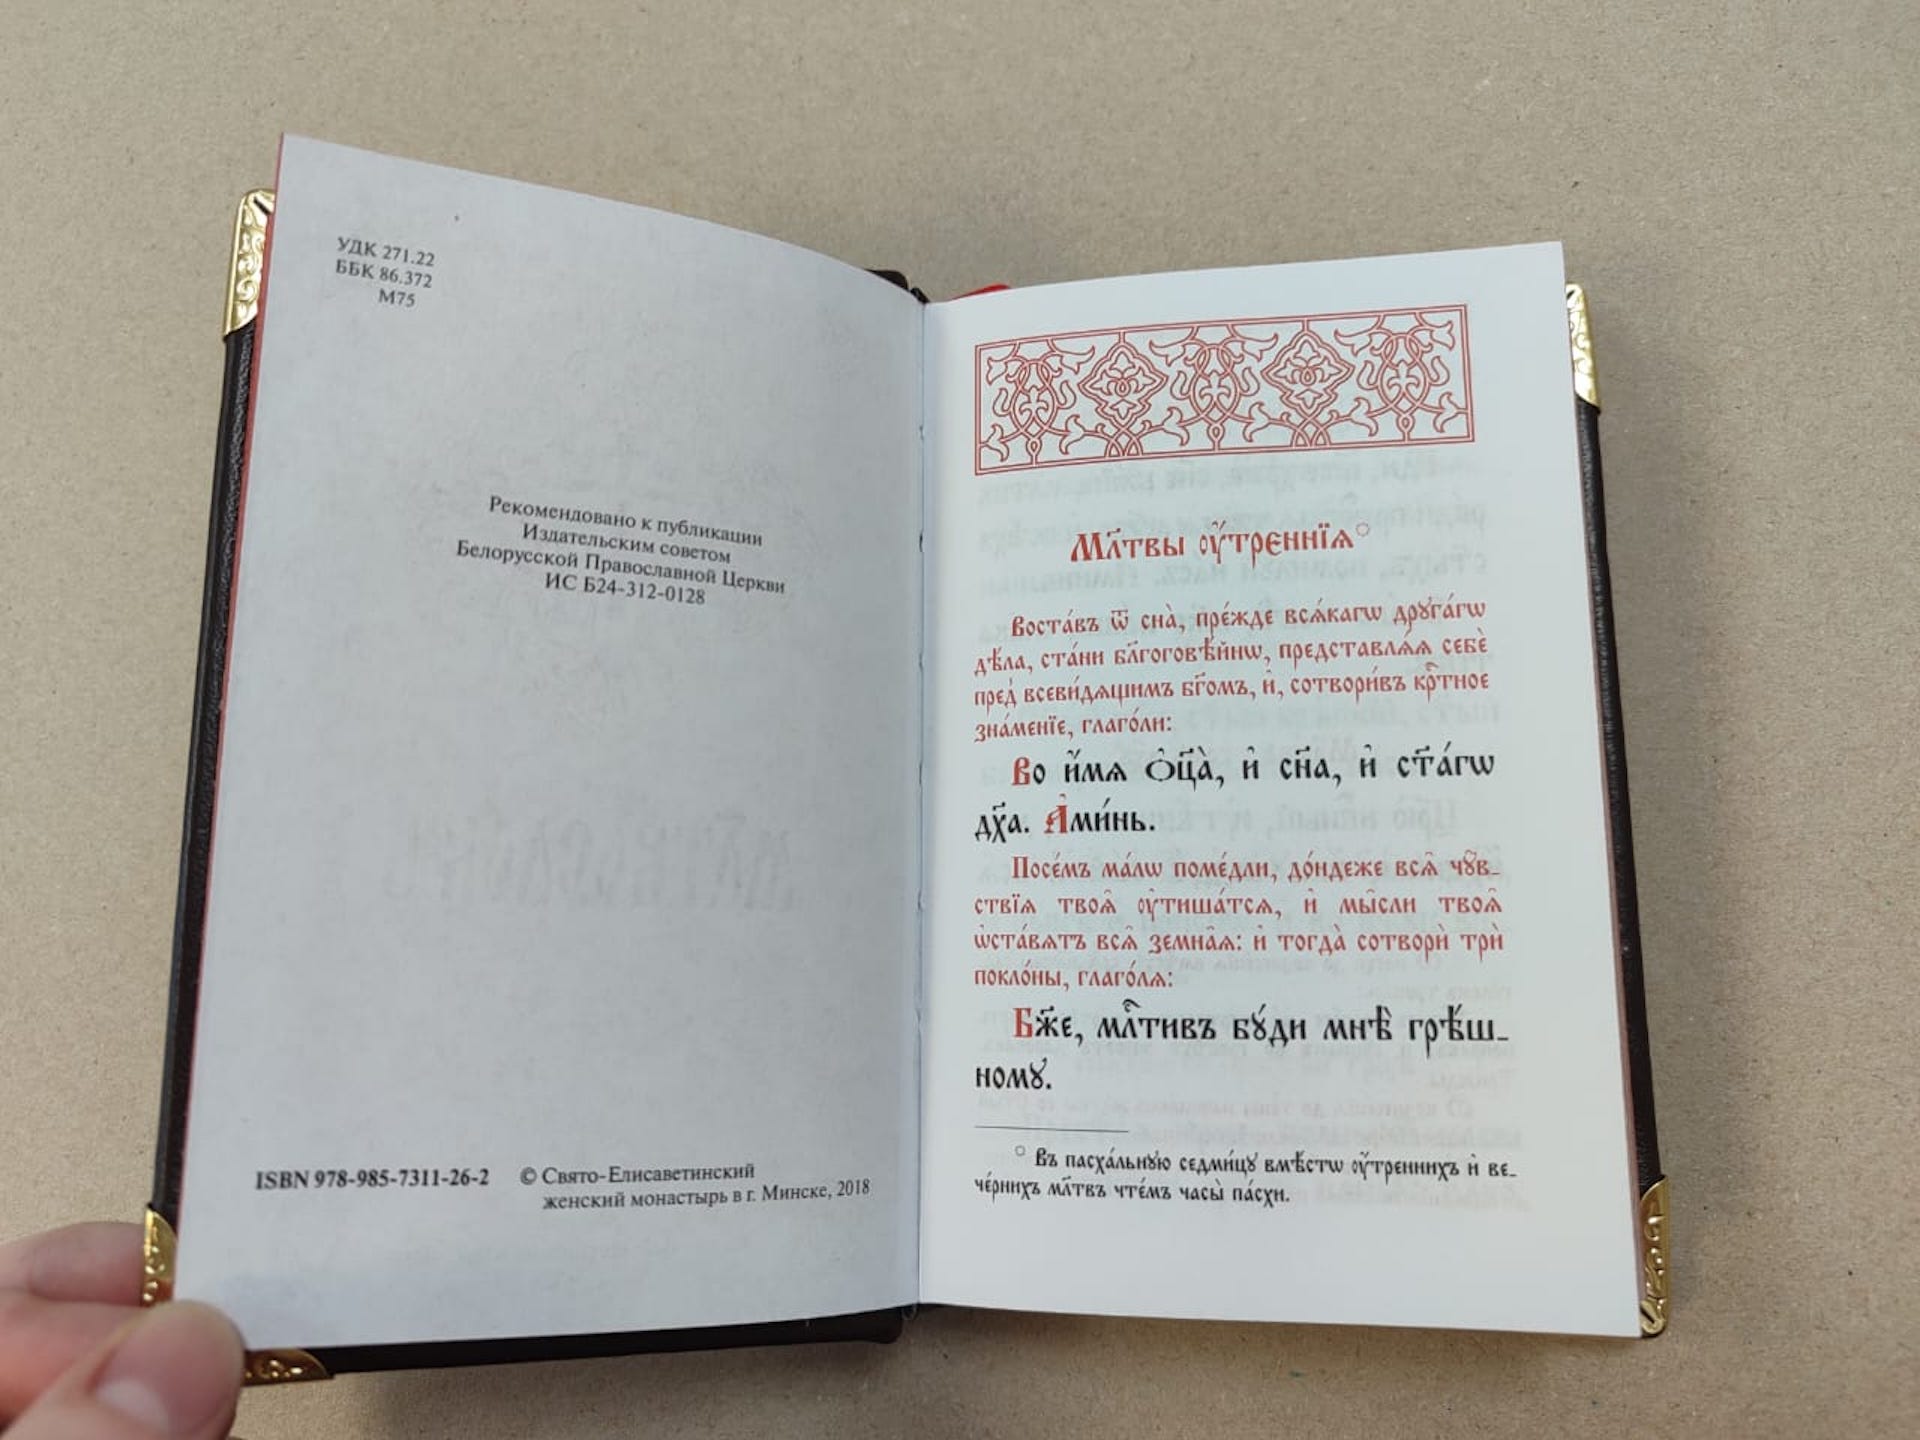 УДК 271.22
ББК 86.372
М75
Рекомендовано к публикации
Издательским советом
Белорусской Православной Церкви
ИС Б24-312-0128
ISBN 978-985-7311-26-2
© Свято-Елисаветинский
женский монастырь в г. Минске, 2018
Мл҃твы ᲂу҆́трєннїѧ
Воста́въ ѿ сна̀, пре́жде всѧ́кагѡ дрꙋга́гѡ
дѣ́ла, ста́ни бл҃гоговѣ́йнѡ, представлѧ́ѧ себѐ
пред̾ всеви́дѧщимъ бг҃омъ, и҆, сотвори́въ крⷭ҇тное
зна́менїе, глаго́ли:
Во и҆́мѧ ѻ҆ц҃а̀, и҆ сн҃а, и҆ ст҃а́гѡ
дх҃а. А҆ми́нь.
Посе́мъ ма́лѡ поме́дли, до́ндеже всѧ̑ чꙋ̑в-
ствїѧ твоѧ̑ ᲂу҆тиша́тсѧ, и҆ мы̑сли твоѧ̑
ѡ҆ста́вѧтъ всѧ̑ земна̑ѧ: и҆ тогда̀ сотворѝ трѝ
покло́ны, глаго́лѧ:
Бж҃е, млⷭ҇тивъ бꙋ́ди мнѣ̀ грѣ́ш-
номꙋ.
Въ пасха́льнꙋю седми́цꙋ вмѣ́стѡ ᲂу҆́треннихъ и҆ ве-
че́рнихъ мл҃твъ чте́мъ часы̀ па́схи.